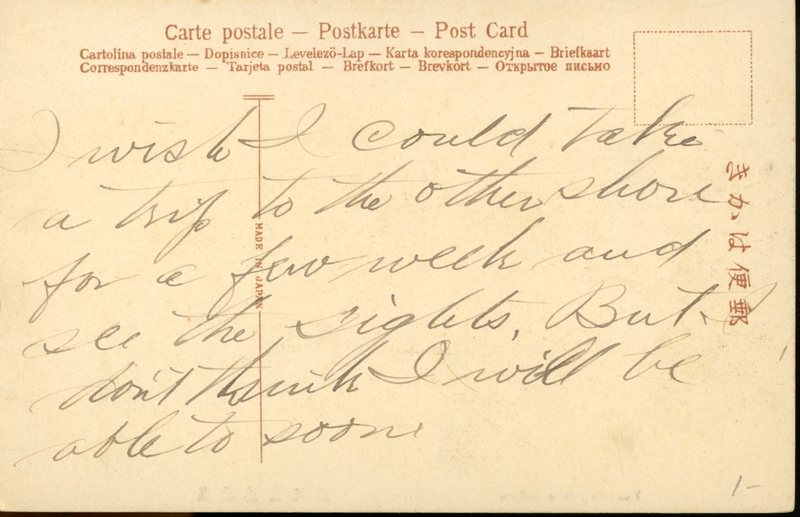 Carte postale — Postkarte — Post Card
Cartolina postale — Dopisnice — Levelező-Lap — Karta korespondencyjna — Briefkaart
Correspondenzkarte — Tarjeta postal — Brefkort — Brevkort — Открытое письмо
I wish I could take
a trip to the other shore
for a few week and
see the sights. But I
don't think I will be
able to soon
MADE IN JAPAN
きかは便郵
1-